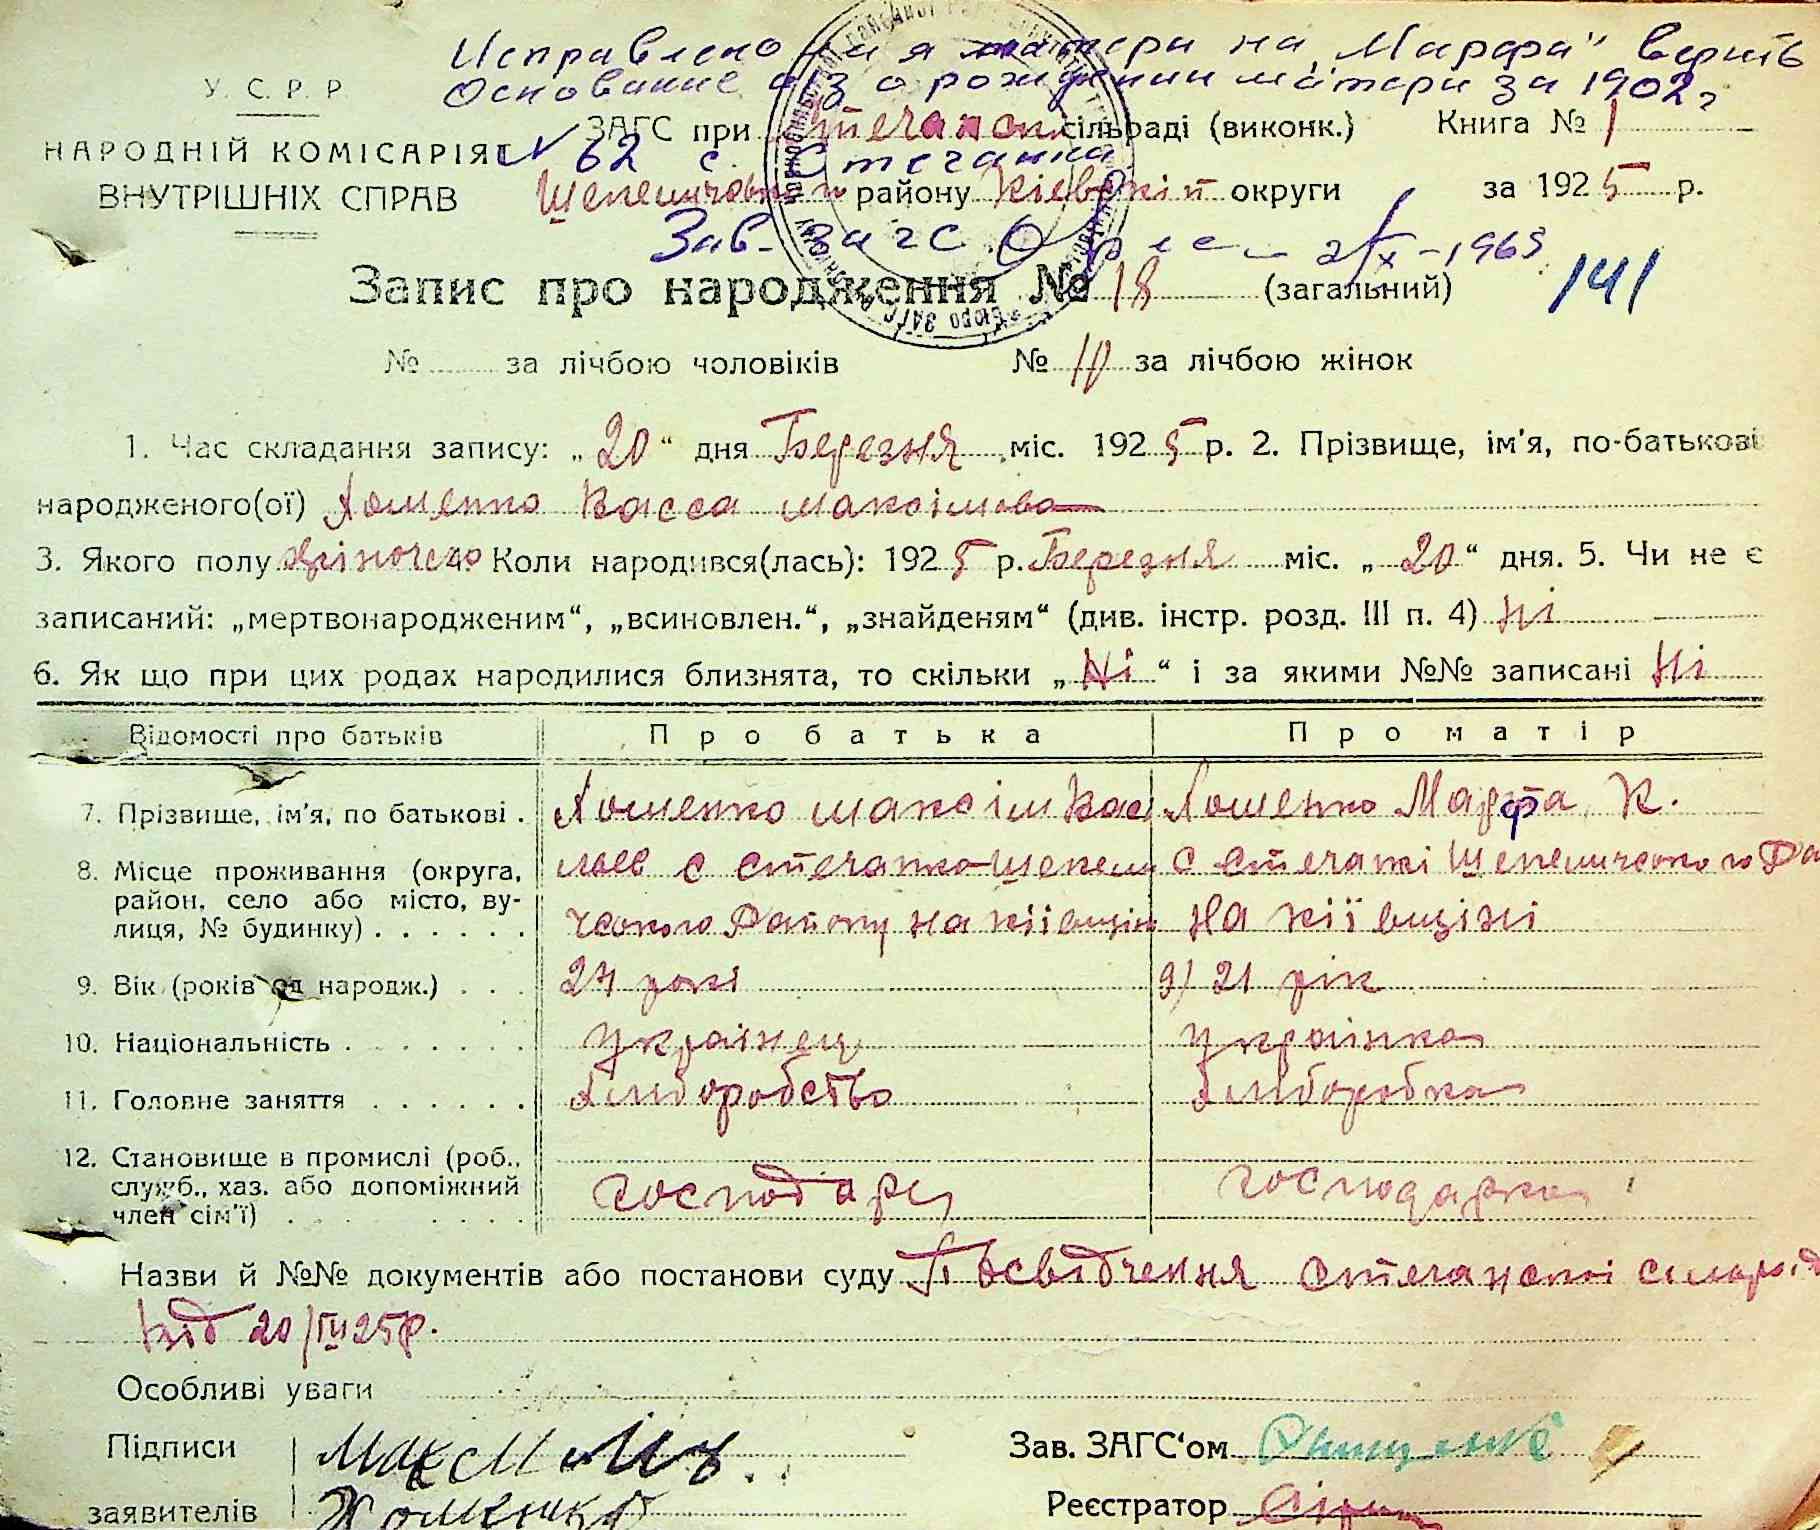 Исправлено имя матери на "Марфа" верить
Основание а/з о рождении матери за 1902 г
У. С. Р. Р.
ЗАГС при Стечанск сільраді (виконк.) Книга № 1
НАРОДНІЙ КОМІСАРІЯТ
№ 62 с. Стечанка
ВНУТРІШНІХ СПРАВ
Шепеличськ району Київській округи за 1925 р.
Зав. загс 2/X-1969
Запис про народження № 18 (загальний) 141
№ за лічбою чоловіків № 10 за лічбою жінок
1. Час складання запису: „20“ дня Березня міс. 1925 р. 2. Прізвище, ім'я, по-батькові
народженого(ої) Хоменко Васса максімова
3. Якого полу жіночого 4. Коли народився(лась): 1925 р. Березня міс. „20“ дня. 5. Чи не є
записаний: „мертвонародженим“, „всиновлен.“, „знайденям“ (див. інстр. розд. III п. 4) ні
6. Як що при цих родах народилися близнята, то скільки „Ні“ і за якими №№ записані Ні
Відомості про батьків Про батька Про матір
7. Прізвище, ім'я, по батькові . Хоменко максім Вас Хоменко Марфа К.
8. Місце проживання (округа, район, село або місто, вулиця, № будинку) . . . . . .
льев с стечанка шепели с стечанкі Шепеличського Ра
чського Району на кіівщін на кіївщіні
9. Вік (років од народж.) . . . 24 рокі 9) 21 рік
10. Національність . . . . . . . українец українка
11. Головне заняття . . . . . . хліборобство хліборобка
12. Становище в промислі (роб., служб., хаз. або допоміжний член сім'ї) . . . . . . . господарь господарка
Назви й №№ документів або постанови суду Посвідчення стечанскоі сільрад
від 20/III 25р.
Особливі уваги
Підписи Максим
Зав. ЗАГС‘ом
заявителів Хоменко
Реєстратор